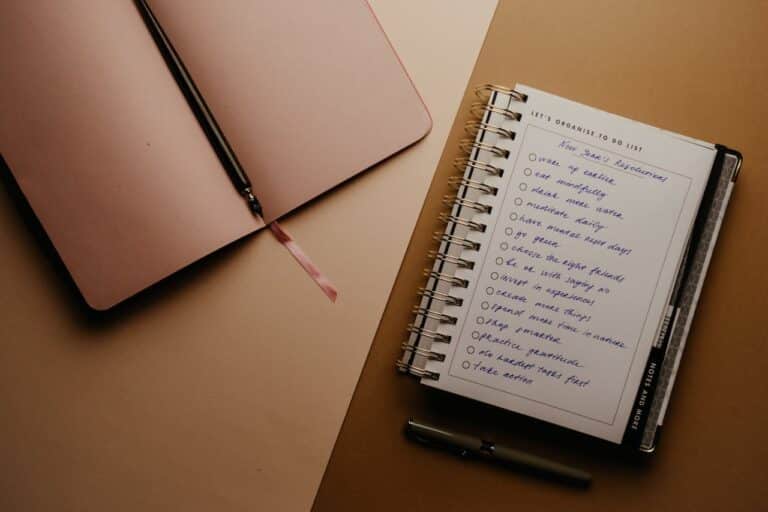 LET'S ORGANISE - TO DO LIST
New Year's Resolutions
wake up earlier
eat mindfully
drink more water
meditate daily
have mental rest days
go green
choose the right friends
be ok with saying no
invest in experiences
create more things
spend more time in nature
shop smarter
practice gratitude
do hardest tasks first
take action
NOTES AND MORE